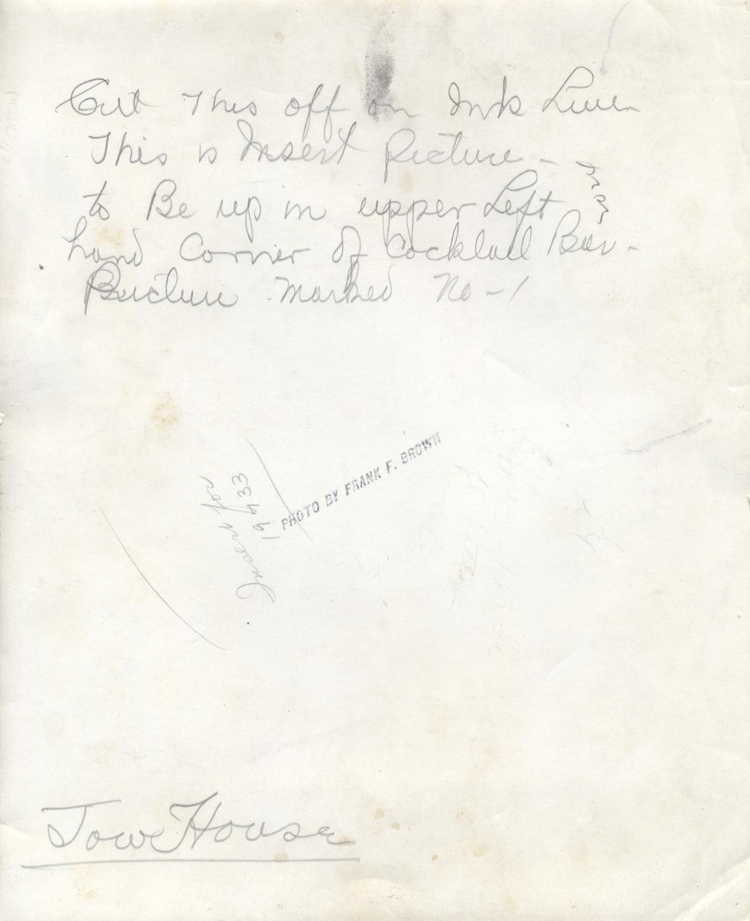 Cut This off on Ink Line
This is Insert Picture -
to Be up in upper Left
hand Corner of Cocktail Bar -
Picture marked No - 1
PHOTO BY FRANK F. BROWN
Insert for
19433
Town House